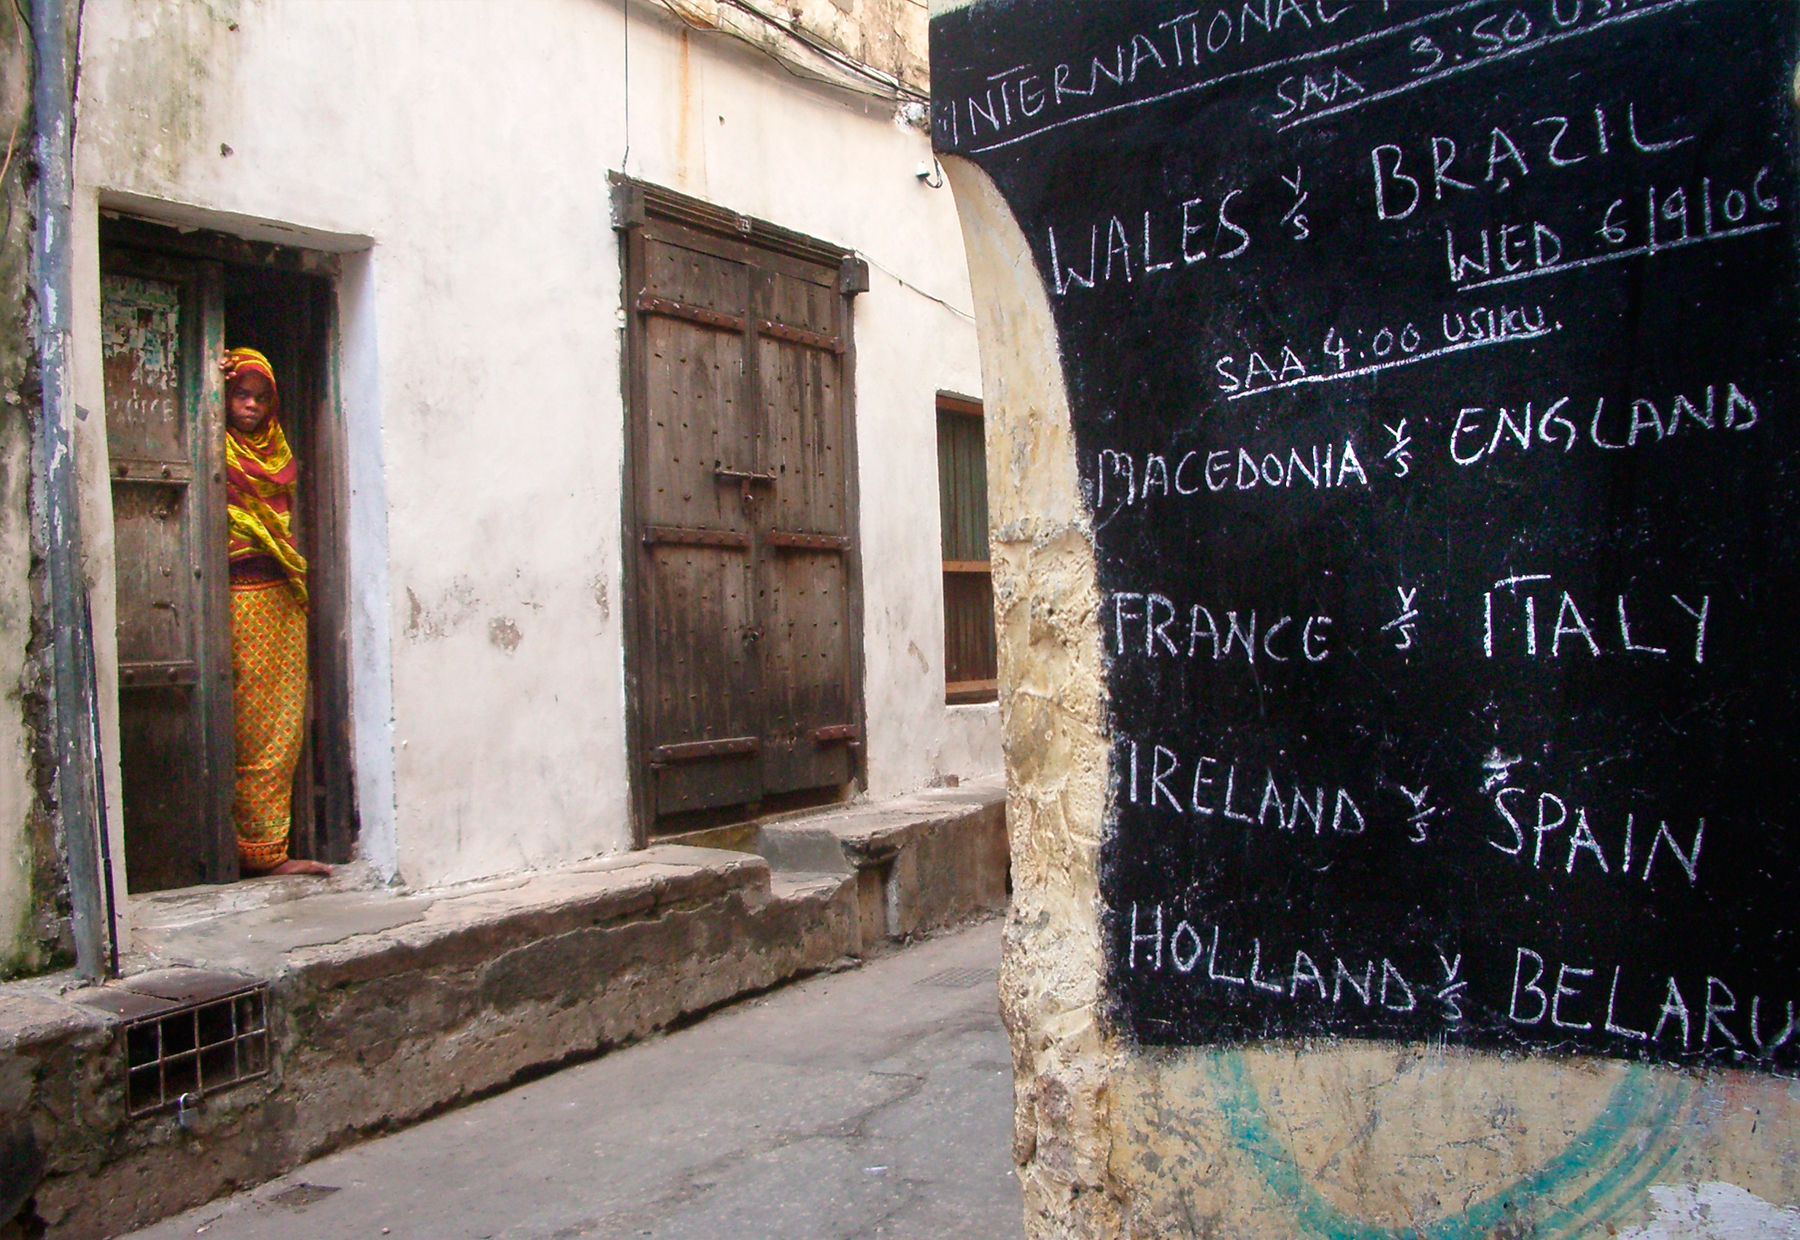 INTERNATIONAL
SAA 3:50 USI
WALES V/S BRAZIL
WED 6/9/06
SAA 4:00 USIKU.
MACEDONIA V/S ENGLAND
FRANCE V/S ITALY
IRELAND V/S SPAIN
HOLLAND V/S BELARU